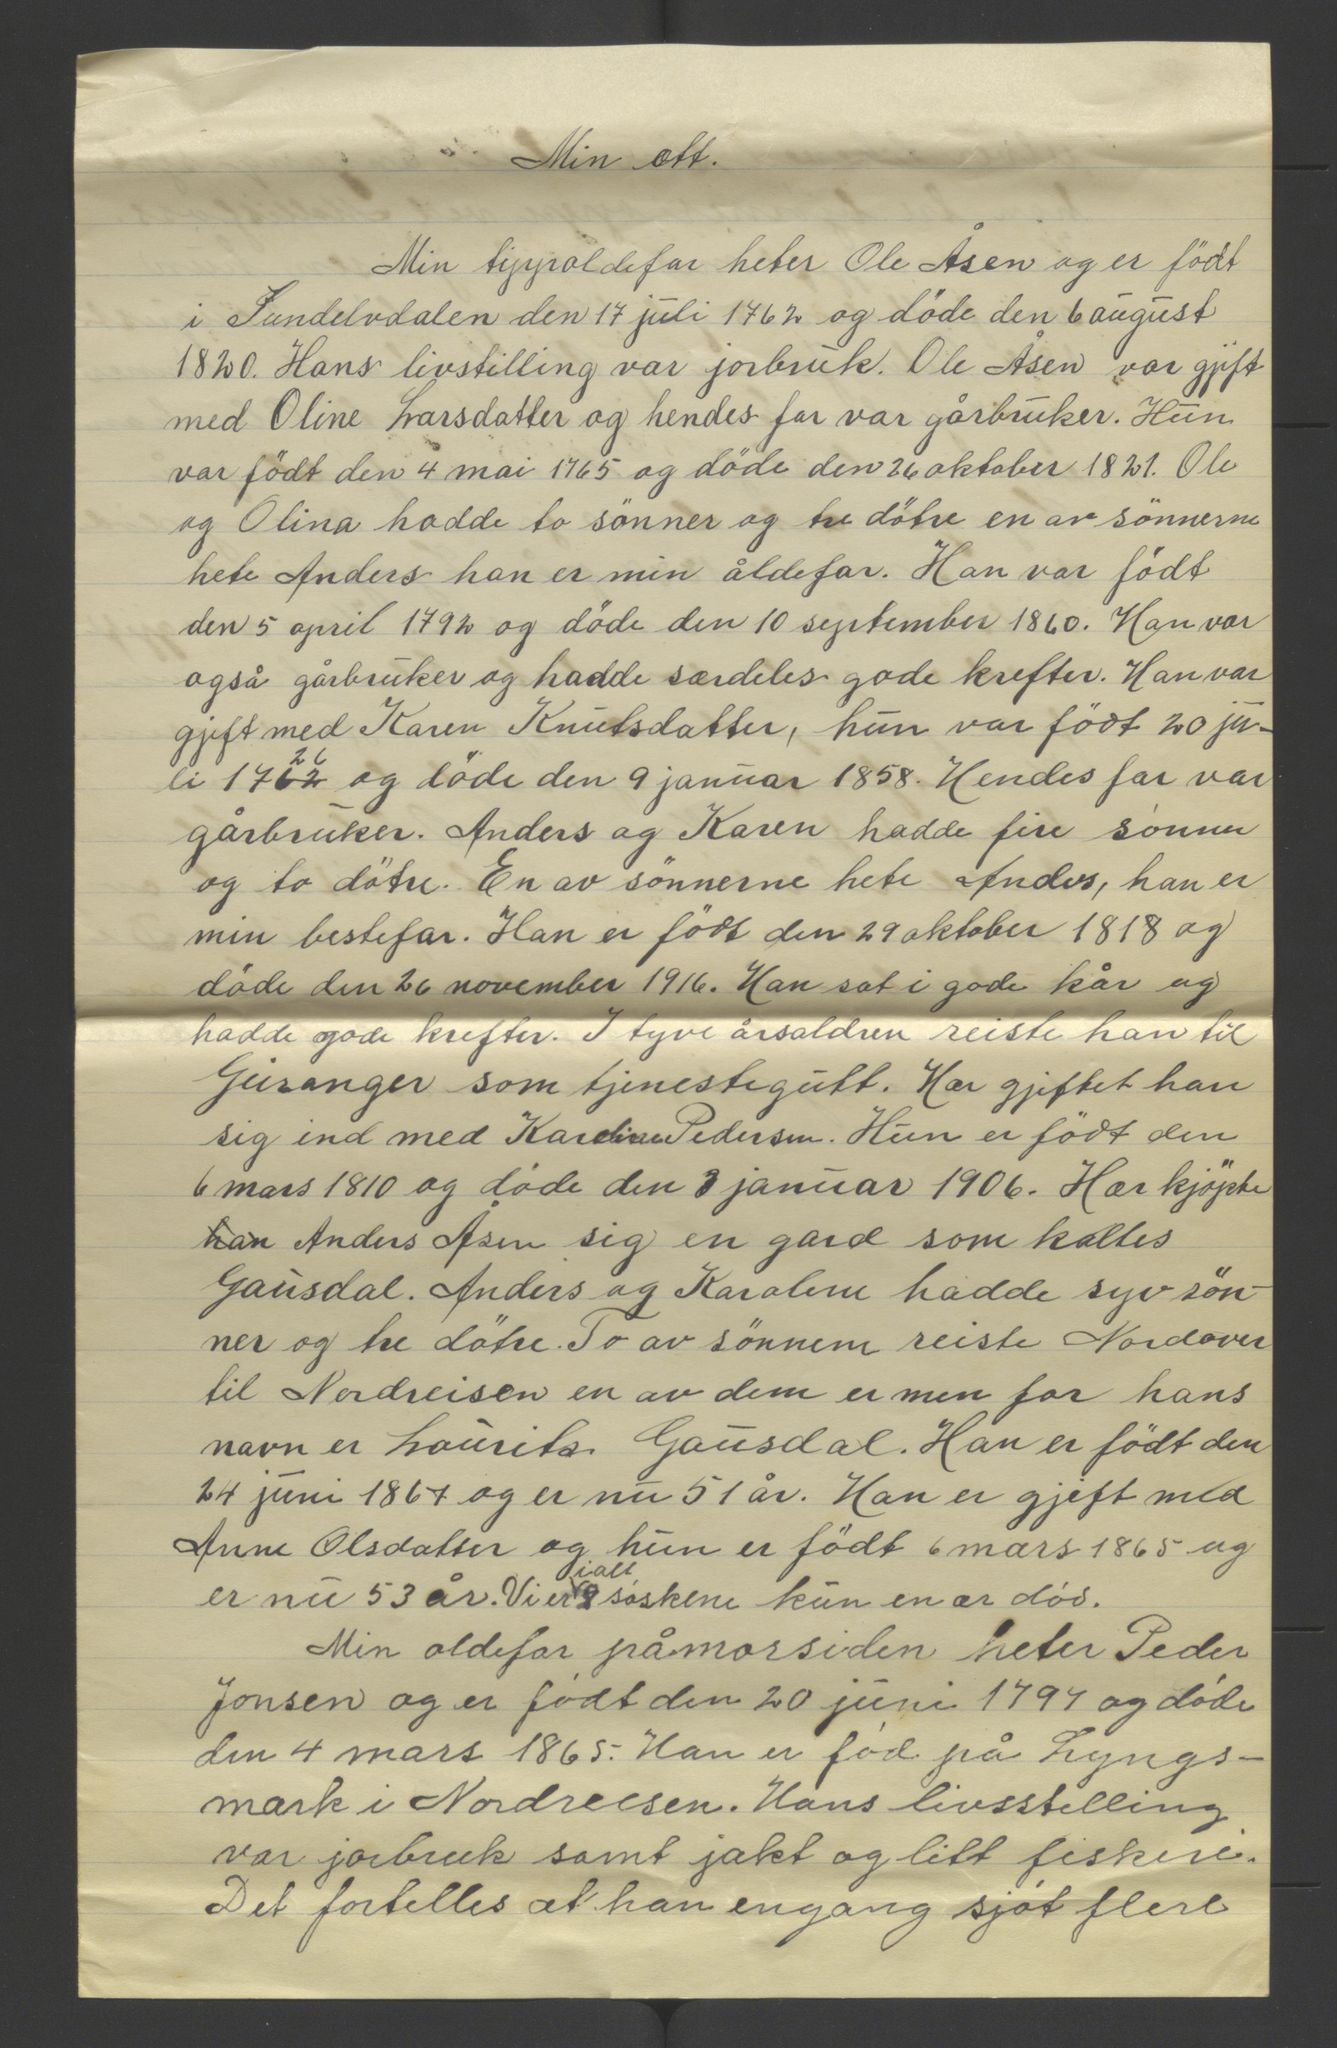 Min ætt.
Min tipproldefar heter Ole Åsen og er født
i Sundelvdalen den 17 juli 1762 og döde den 6 august
1820. Hans livstilling var jorbruk. Ole Åsen var gjift
med Oline Larsdatter og hendes far var gårbruker. Hun
var födt den 4 mai 1765 og döde den 26 oktober 1821. Ole
og Olina hadde to sönner og tre dötre en av sönnerne
hete Anders han er min åldefar. Han var födt
den 5 april 1792 og döde den 10 september 1860. Han var
også gårbruker og hadde særdeles gode krefter. Han var
gjift med Karen Knutsdatter, hun var födt 20 ju-
26
li 1762 og döde den 9 januar 1858. Hendes far var
gårbruker. Anders og Karen hadde fire sönner
og to dötre. En av sönnerne hete Anders, han er
min bestefar. Han er födt den 29 oktober 1818 og
döde den 26 november 1916. Han sat i gode kår og
hadde gode krefter. I tyve årsaldren reiste han til
Geiranger som tjenestegutt. Her gjiftet han
sig ind med Karoline Pedersen. Hun er födt den
6 mars 1810 og döde den 3 januar 1906. Her kjöpte
han Anders Åsen sig en gard som kaltes
Gausdal. Anders og Karolene hadde syv sön-
ner og tre dötre. To av sönnene reiste Nordover
til Nordreisen en av dem er men far hans
navn er Laurits Gausdal. Han er födt den
24 juni 1867 og er nu 51 år. Han er gjeft med
Anne Olsdatter og hun er födt 6 mars 1865 og
ialt
er nu 53 år. Vi er 9 söskene kun en er död.
Min oldefar på morsiden heter Peder
Jonsen og er födt den 20 juni 1797 og döde
den 4 mars 1865. Han er föd på Lyngs-
mark i Nordreesen. Hans livsstelling
var jorbruk samt jakt og litt fiskeri.
Det fortelles at han engang sjöt flere